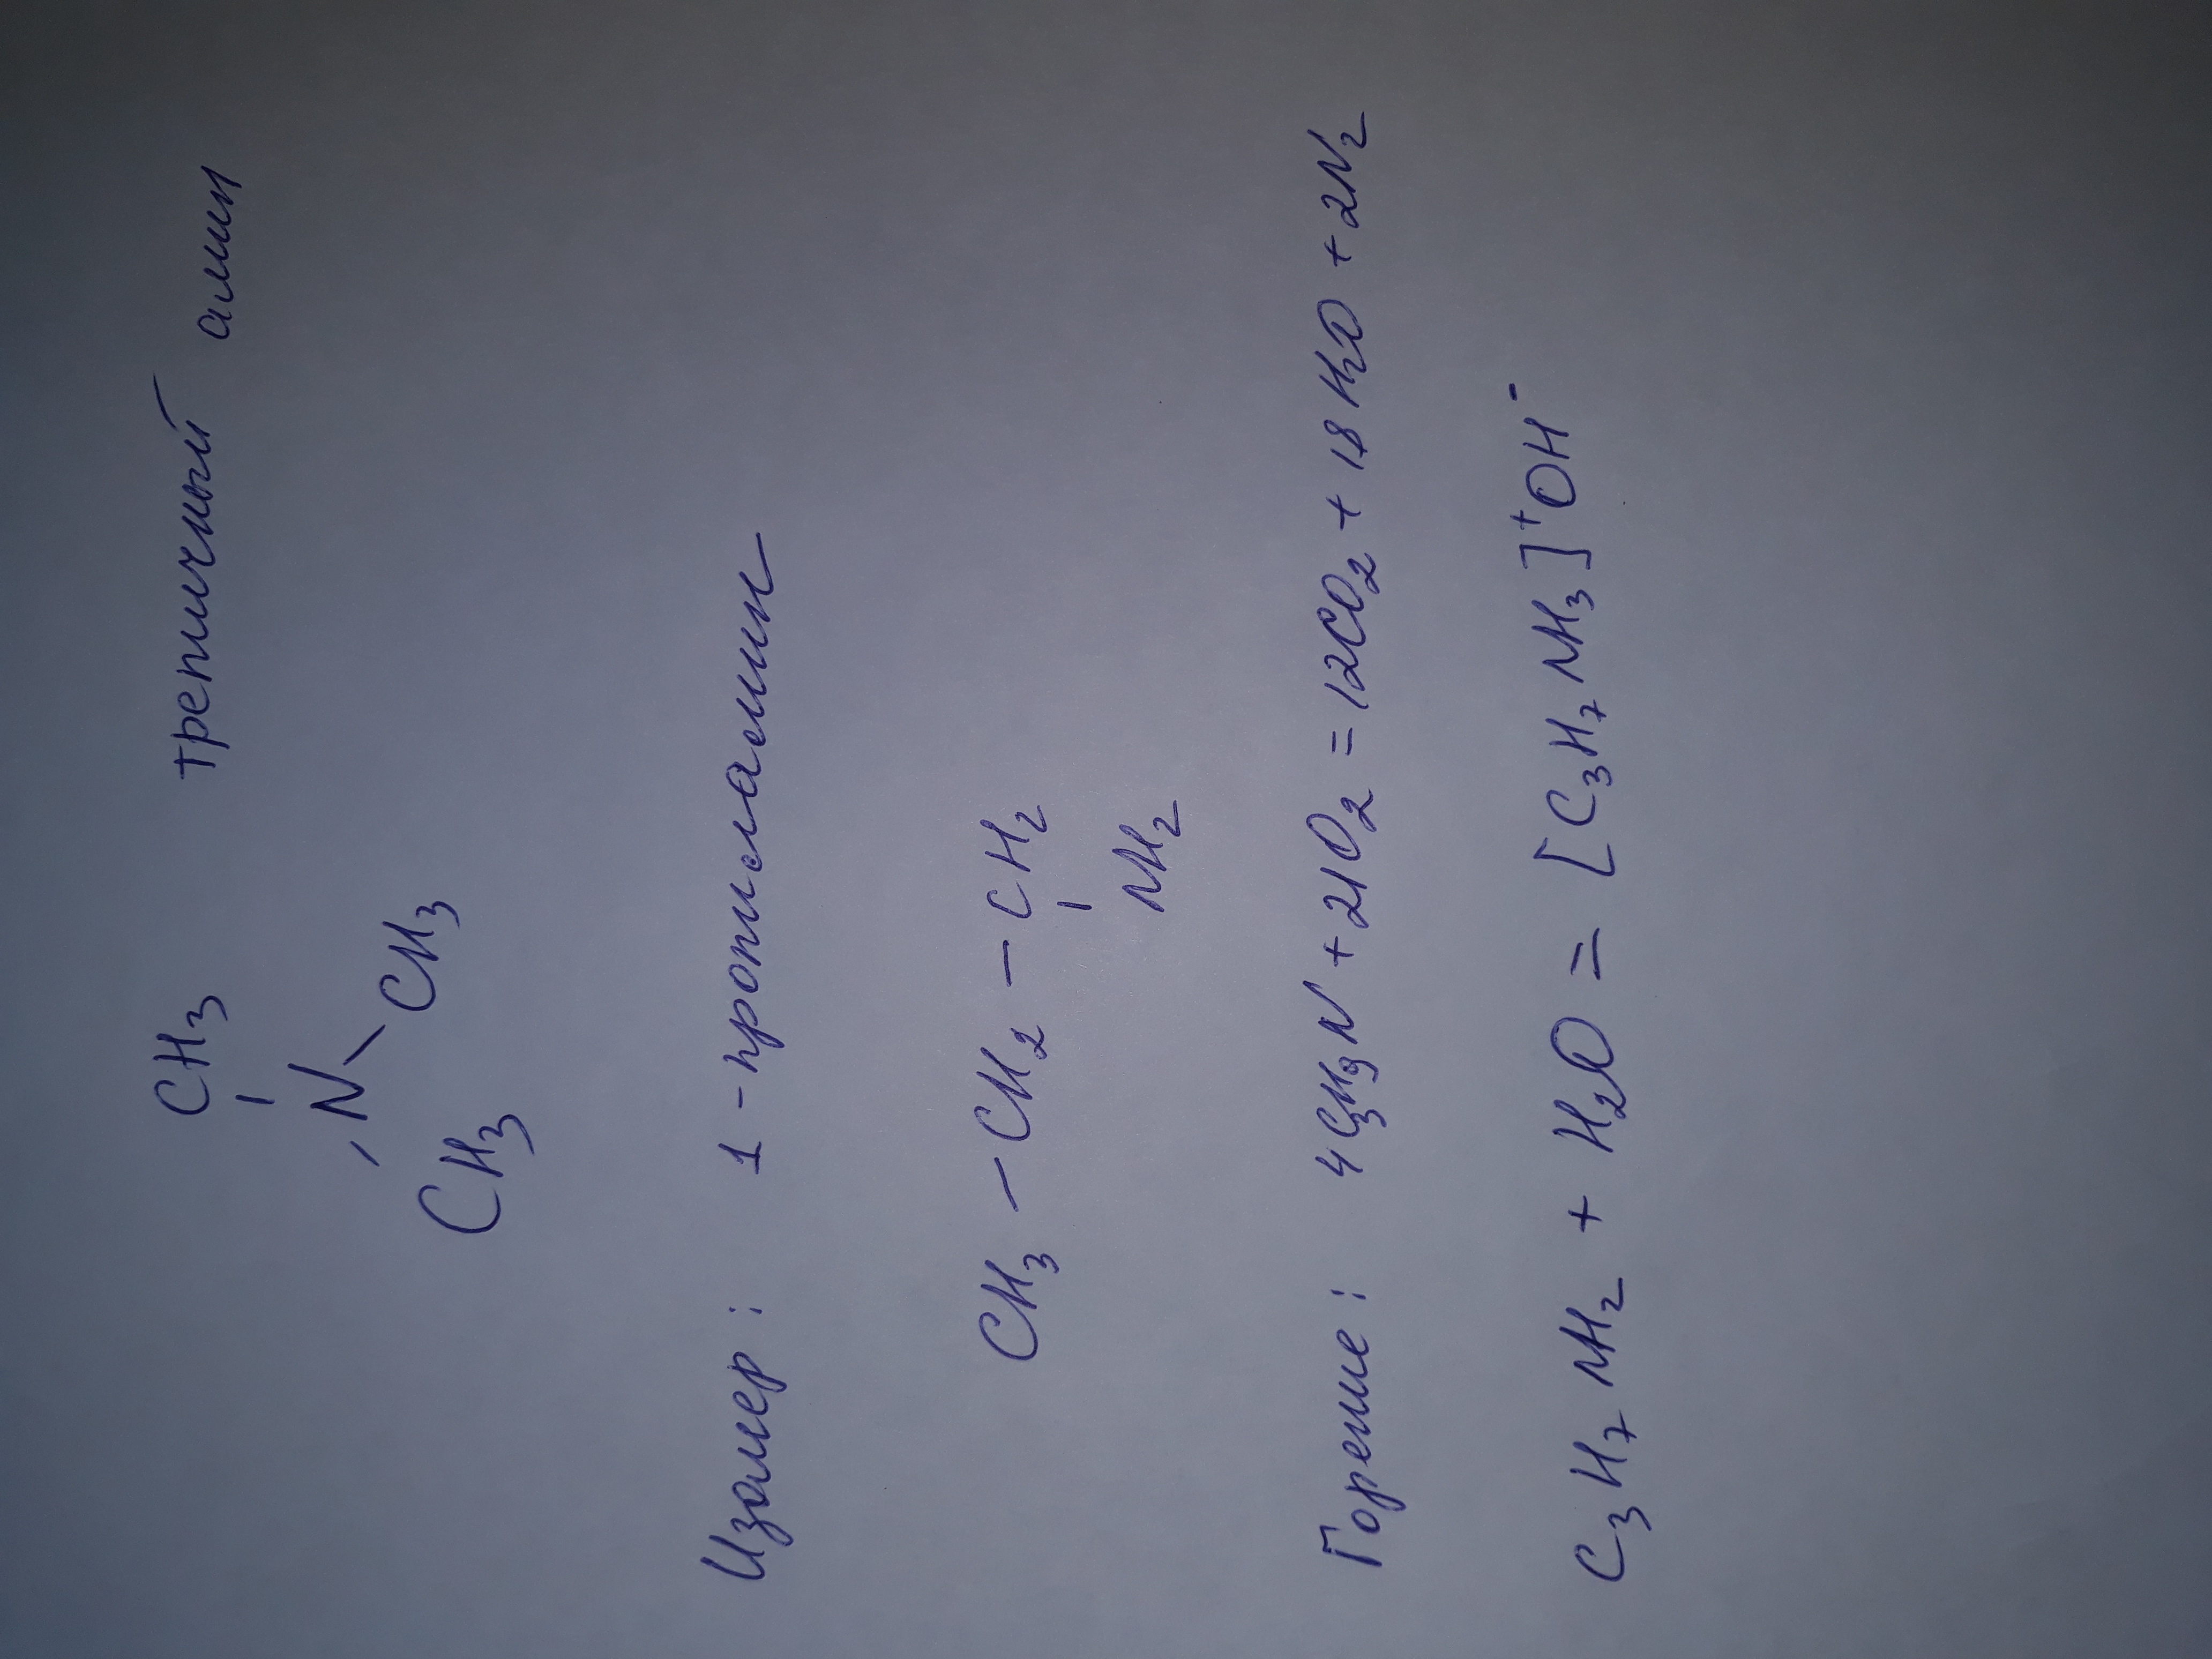 CH₃ третичный амин
N
CH₃ CH₃
Изомер : 1-пропиламин
CH₃ – CH₂ – CH₂
NH₂
Горение : 4C₃H₉N + 21O₂ = 12CO₂ + 18H₂O + 2N₂
C₃H₇NH₂ + H₂O = [C₃H₇NH₃]⁺OH⁻